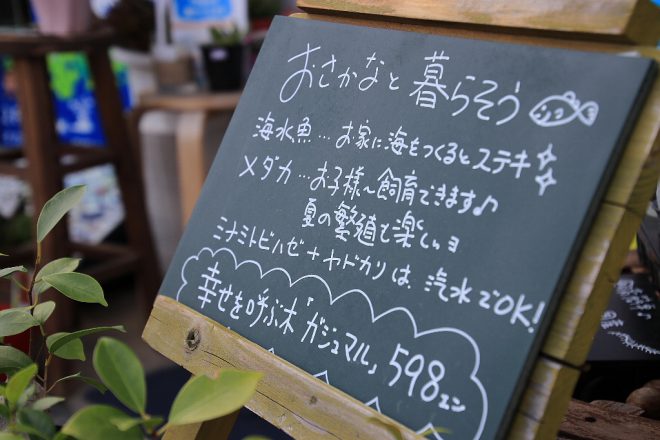 おさかなと暮らそう
海水魚…お家に海をつくるとステキ
メダカ…お子様～飼育できます♪
夏の繁殖も楽しいョ
ミナミトビハゼ+ヤドカリは、汽水でOK!
幸せを呼ぶ木「ガジュマル」598エン